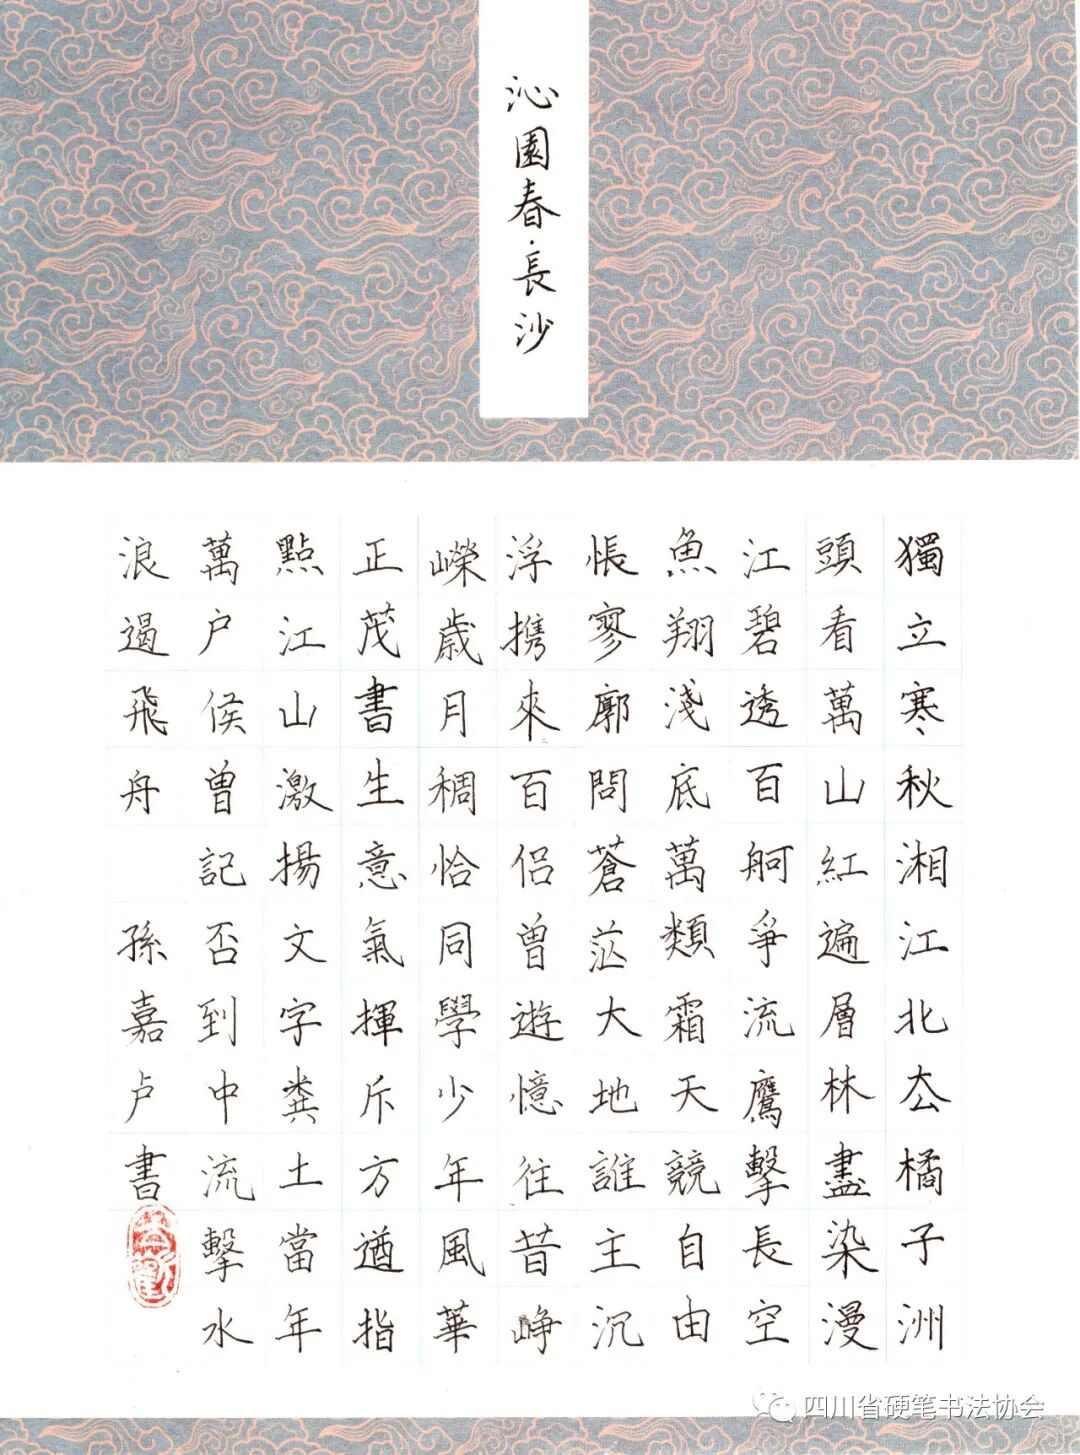 沁園春·長沙
獨立寒秋湘江北去橘子洲
頭看萬山紅遍層林盡染漫
江碧透百舸爭流鷹擊長空
魚翔淺底萬類霜天競自由
悵寥廓問蒼茫大地誰主沉
浮携來百侶曾遊憶往昔崢
嶸歲月稠恰同學少年風華
正茂書生意氣揮斥方遒指
點江山激揚文字糞土當年
萬户侯曾記否到中流擊水
浪遏飛舟 孫嘉卢書
四川省硬笔书法协会